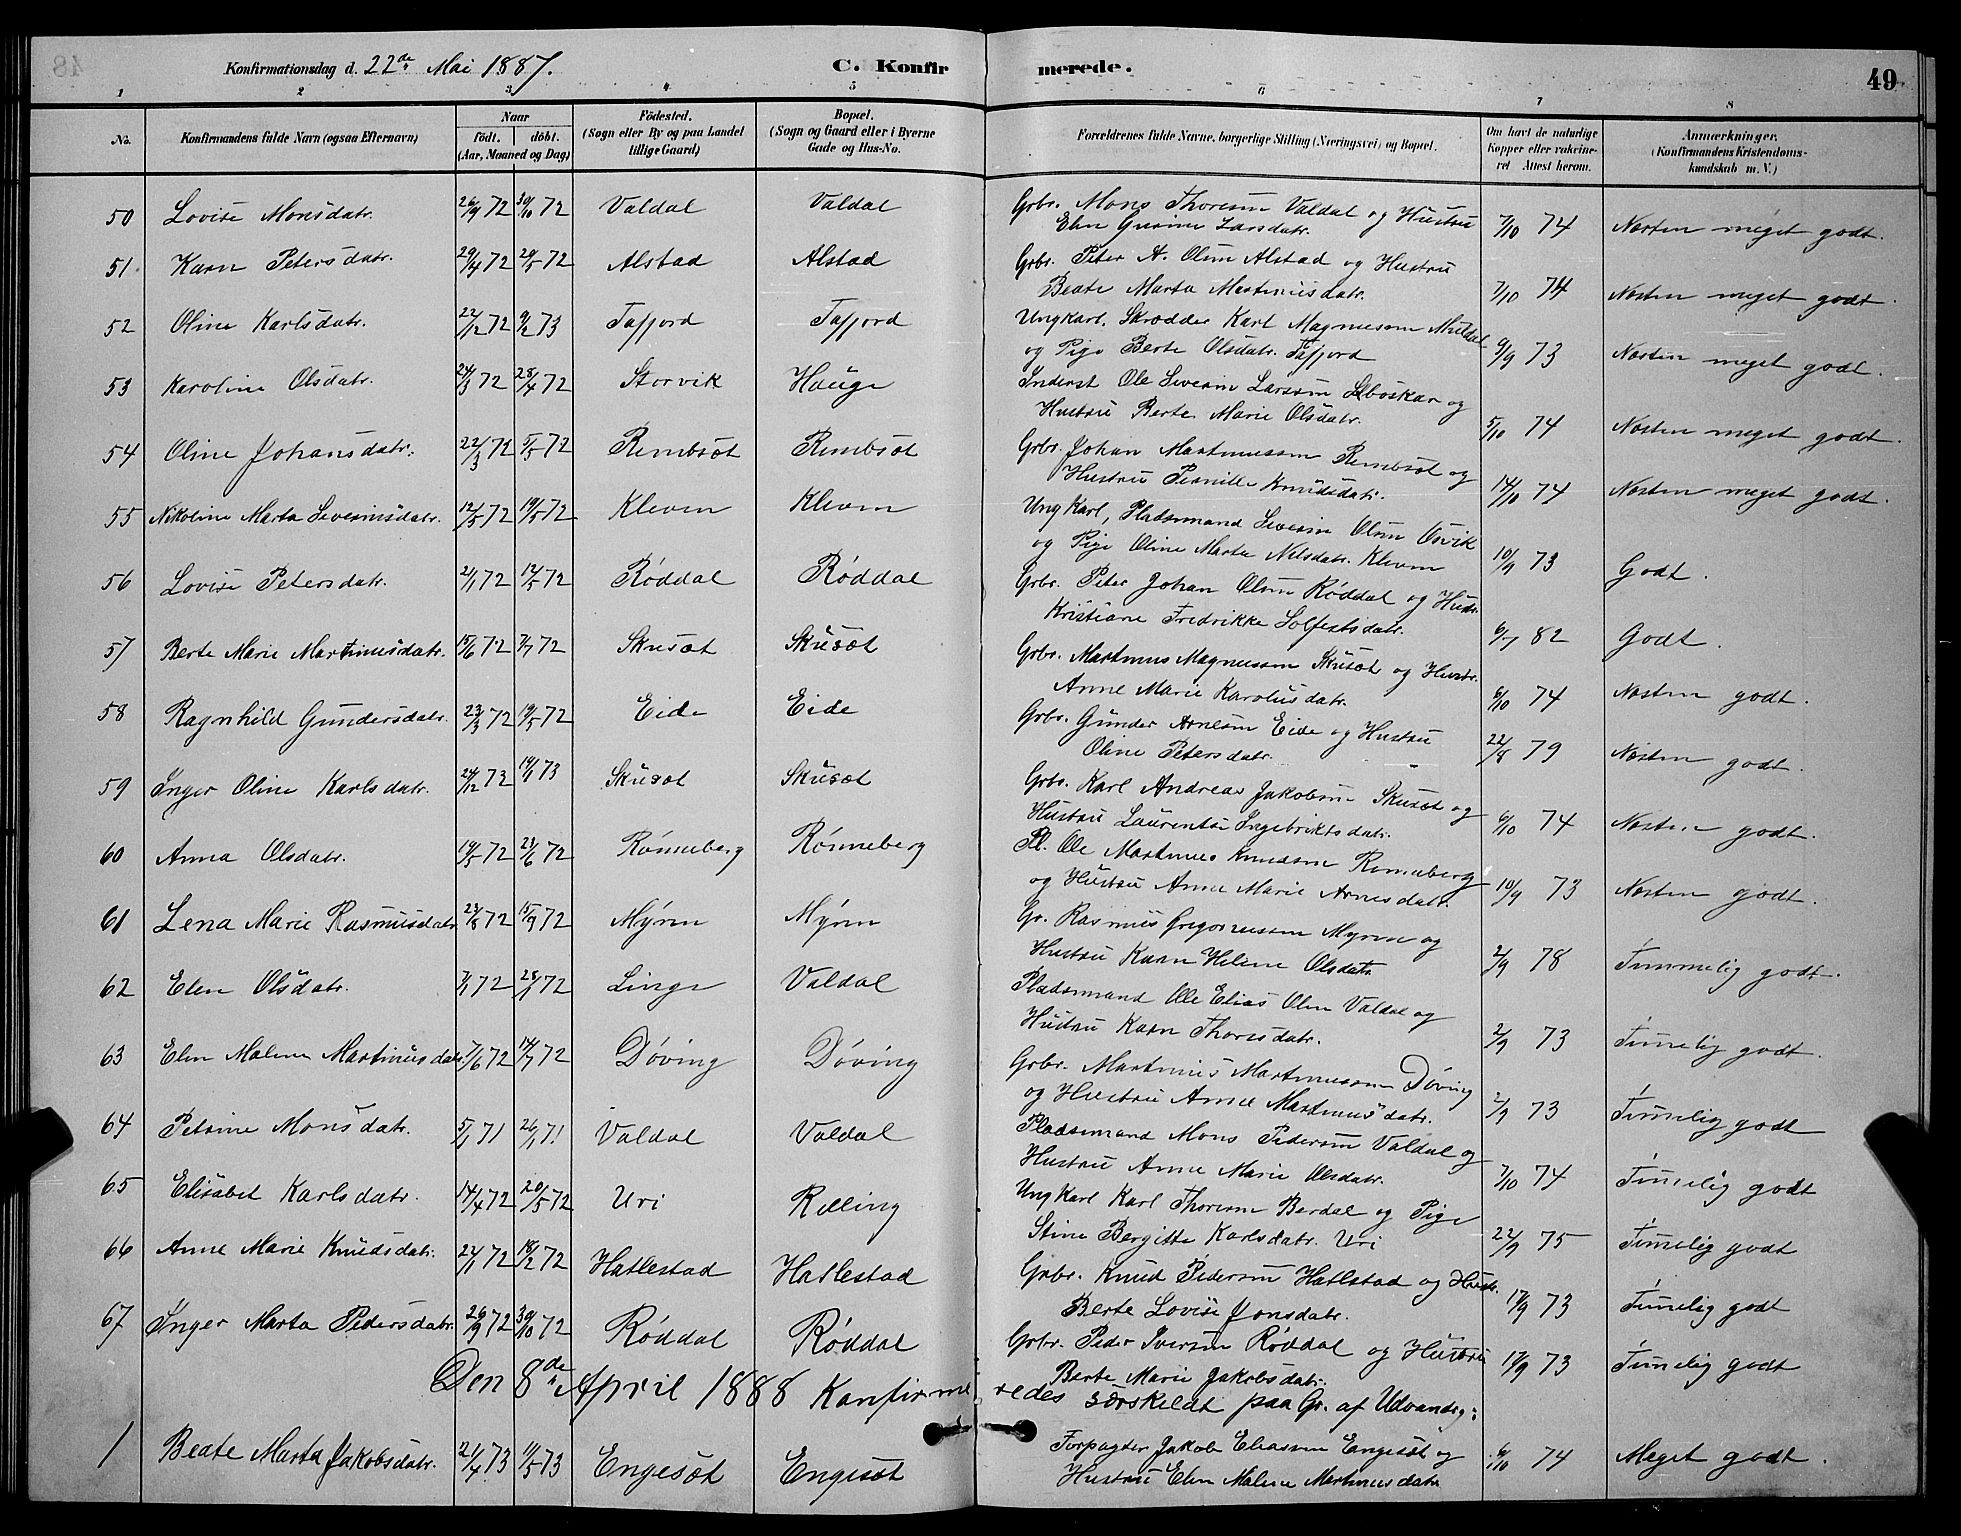 Konfirmationsdag d. 22de Mai 1887. C. Konfirmerede. 49
1 2 3 4 5 6 7 8
No. Konfirmandens fulde Navn (ogsaa Efternavn) Naar født. døbt. (Aar, Maaned og Dag) Fødested. (Sogn eller By og paa Landet tillige Gaard) Bopæl. (Sogn og Gaard eller i Byerne Gade og Hus-No. Forældrenes fulde Navne, borgerlige Stilling (Næringsvei) og Bopæl. Om havt de naturlige Kopper eller vakcineret Attest herom. Anmærkninger. (Konfirmandens Kristendomskundskab m. V.)
50 Lovise Monsdatr. 26/9 72 30/10 72 Valdal Valdal Grbr. Mons Thoresen Valdal og Hustru Elen Gurine Larsdatr. 7/10 74 Næsten meget godt.
51 Karn Petersdatr. 29/4 72 20/5 72 Alstad Alstad Grbr. Peter A. Olsen Alstad og Hustru Beate Marta Martinusdatr. 7/10 74 Næsten meget godt.
52 Oline Karlsdatr. 22/12 72 9/2 73 Tafjord Tafjord Ungkarl, Skrædder Karl Magnussen Muldal og Pige Berte Olsdatr. Tafjord 9/9 73 Næsten meget godt.
53 Karoline Olsdatr. 24/3 72 28/4 72 Storvik Hauge Inderst Ole Severin Larssen og Hustru Berte Marie Olsdatr. 5/10 74 Næsten meget godt.
54 Oline Johansdatr. 22/3 72 5/5 72 Rembsæt Rembsæt Grbr. Johan Martinussen Rembsæt og Hustru Pernille Knudsdatr. 14/10 74 Næsten meget godt.
55 Nikoline Marta Severinsdatr. 12/5 72 19/5 72 Kleven Kleven Ungkarl, Pladsmand Severin Olsen Osvik og Pige Oline Marta Nilsdatr. Kleven 10/9 73 Godt.
56 Lovise Petersdatr. 2/1 72 12/5 72 Røddal Røddal Grbr. Peter Johan Olsen Røddal og Hustr. Kristiane Fredrikke Solfestsdatr. 6/7 82 Godt.
57 Berte Marie Martinusdatr. 15/6 72 7/7 72 Skusæt Skusæt Grbr. Martinus Magnussen Skusæt og Hustr. Anne Marie Karolusdatr. 6/10 74 Næsten godt.
58 Ragnhild Gundersdatr. 23/3 72 19/5 72 Eide Eide Grbr. Gunder Arnesen Eide og Hustru Oline Petersdatr. 22/8 79 Næsten godt.
59 Inger Oline Karlsdatr. 24/12 73 19/1 73 Skusæt Skusæt Grbr. Karl Andreas Jakobsen Skusæt og Hustru Laurentse Ingebriktsdatr. 6/10 74 Næsten godt.
60 Anna Olsdatr. 19/5 72 23/6 72 Rønneberg Rønneberg Pl. Ole Martinus Knudsen Rønneberg og Hustru Anne Marie Arnesdatr. 10/9 73 Næsten godt.
61 Lena Marie Rasmusdatr. 23/8 72 15/9 72 Myren Myren Gr. Rasmus Gregoriussen Myren og Hustru Karn Helene Olsdatr. 2/9 78 Timmelig godt.
62 Elen Olsdatr. 7/1 72 28/1 72 Linge Valdal Pladsmand Ole Elias Olsen Valdal og Hustru Karn Thoresdatr. 2/9 73 Timelig godt.
63 Elen Malene Martinusdatr. 7/6 72 14/7 72 Døving Døving Grbr. Martinus Martinussen Døving og Hustru Anne Martinusdatr. 2/9 73 Timelig godt
64 Petrine Monsdatr. 5/1 71 26/1 71 Valdal Valdal Pladsmand Mons Pedersen Valdal og Hustru Anne Marie Olsdatr. 7/10 74 Timelig godt
65 Elisabet Karlsdatr. 14/4 72 20/5 72 Uri Relling Ungkarl Karl Thoresen Berdal og Pige Stine Bergitte Karlsdatr. Uri 22/9 75 Timelig godt
66 Anne Marie Knudsdatr. 24/1 72 18/2 72 Hatlestad Hatlestad Grbr. Knud Pedersen Hatlstad og Hustr. Berte Lovise Jonsdatr. 17/9 73 Timelig godt
67 Inger Marta Pedersdatr. 26/9 72 30/10 72 Røddal Røddal Grbr. Peder Iversen Røddal og Hustru Berte Marie Jakobsdatr. 17/9 73 Timelig godt
Den 8de April 1888 Konfirmeredes særskildt paa Gr. af Udvandrg:
1 Beate Marta Jakobsdatr. 21/4 73 11/5 73 Engesæt Engesæt Forpagter Jakob Eliassen Engesæt og Hustru Elen Malene Martinusdatr 6/10 74 Meget godt.